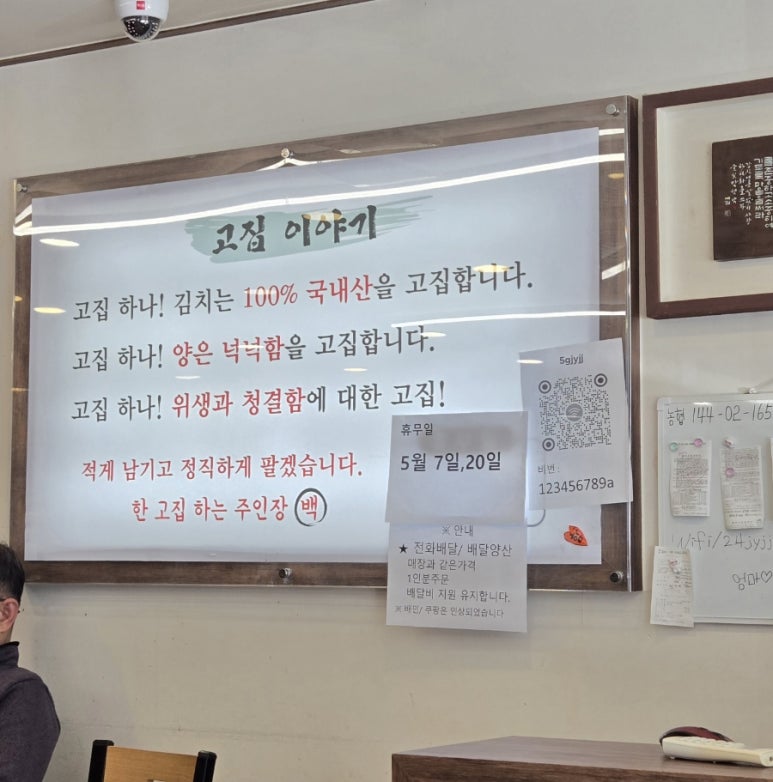 고집 이야기
고집 하나! 김치는 100% 국내산을 고집합니다.
고집 하나! 양은 넉넉함을 고집합니다.
고집 하나! 위생과 청결함에 대한 고집!
적게 남기고 정직하게 팔겠습니다.
한 고집 하는 주인장 백
5gjyjj
비번 :
123456789a
휴무일
5월 7일,20일
※ 안내
★ 전화배달/ 배달양산
매장과 같은가격
1인분주문
배달비 지원 유지합니다.
※ 배민/ 쿠팡은 인상되었습니다
농협 144-02-165
wifi/24jyjj
엄마♡